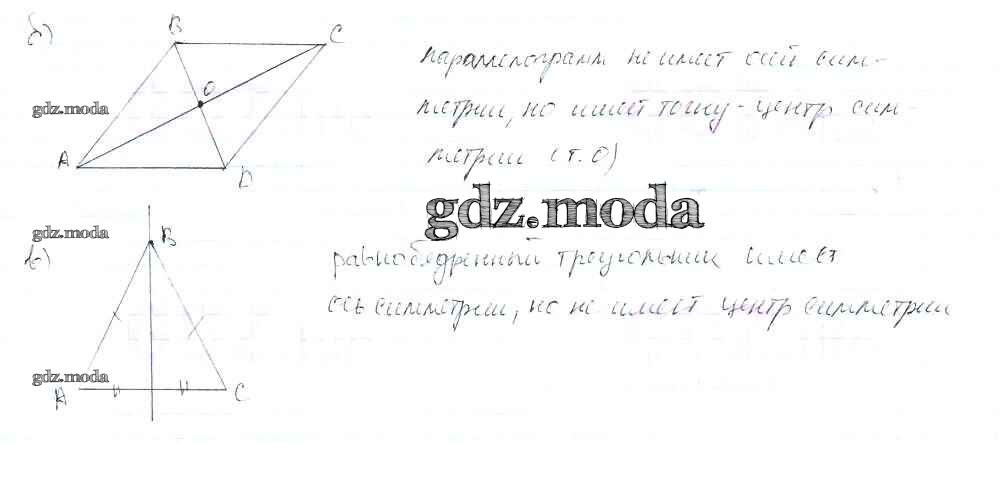 б)
B
C
O
A
D
параллелограмм не имеет осей сим-
метрии, но имеет точку - центр сим-
метрии (т. O)
gdz.moda
gdz.moda
gdz.moda
в)
B
равнобедренный треугольник имеет
ось симметрии, но не имеет центр симметрии
gdz.moda
A
C